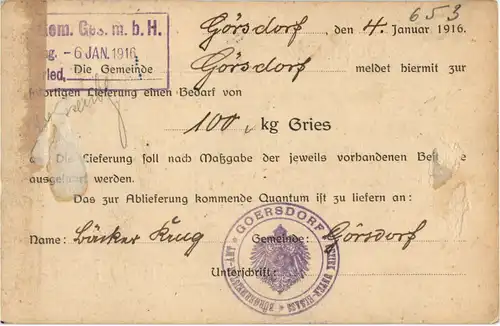 653
...em. Ges. m. b. H.
Görsdorf, den 4. Januar 1916.
-6 JAN. 1916
Die Gemeinde Görsdorf meldet hiermit zur
sofortigen Lieferung einen Bedarf von
100 kg Gries
Die Lieferung soll nach Maßgabe der jeweils vorhandenen
werden.
Das zur Ablieferung kommende Quantum ist zu liefern an:
Name: Bäcker Krug Gemeinde: Görsdorf
Unterschrift:
GOERSDORF